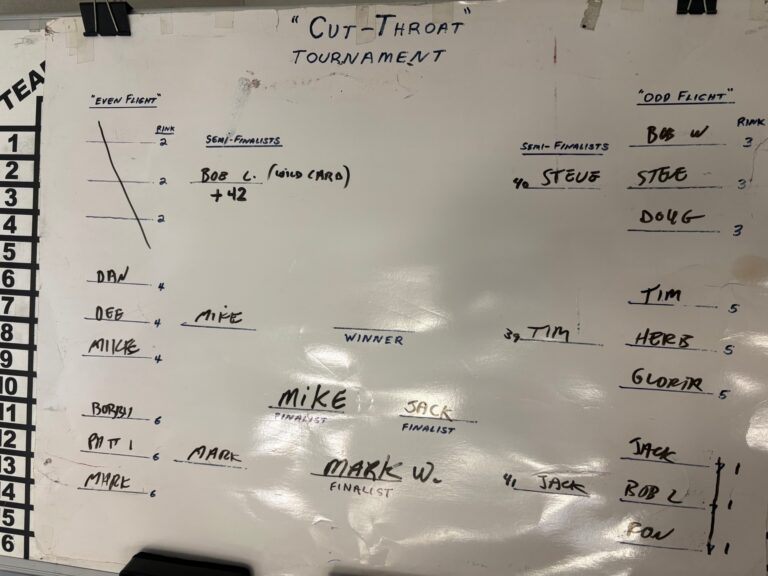 "CUT-THROAT"
TOURNAMENT
TEA
1
2
3
4
5
6
7
8
9
10
11
12
13
4
5
6
"EVEN FLIGHT"
RINK
2
2
2
DAN 4
DEE 4
MIKE 4
BOBBY 6
PATTI 6
MARK 6
SEMI-FINALISTS
BOB L. (WILD CARD)
+42
MIKE
MARK
WINNER
MIKE
FINALIST
JACK
FINALIST
MARK W.
FINALIST
SEMI-FINALISTS
STEVE
TIM
JACK
"ODD FLIGHT"
RINK
BOB W 3
STEVE 3
DOUG 3
TIM 5
HERB 5
GLORIA 5
JACK 1
BOB L 1
RON 1